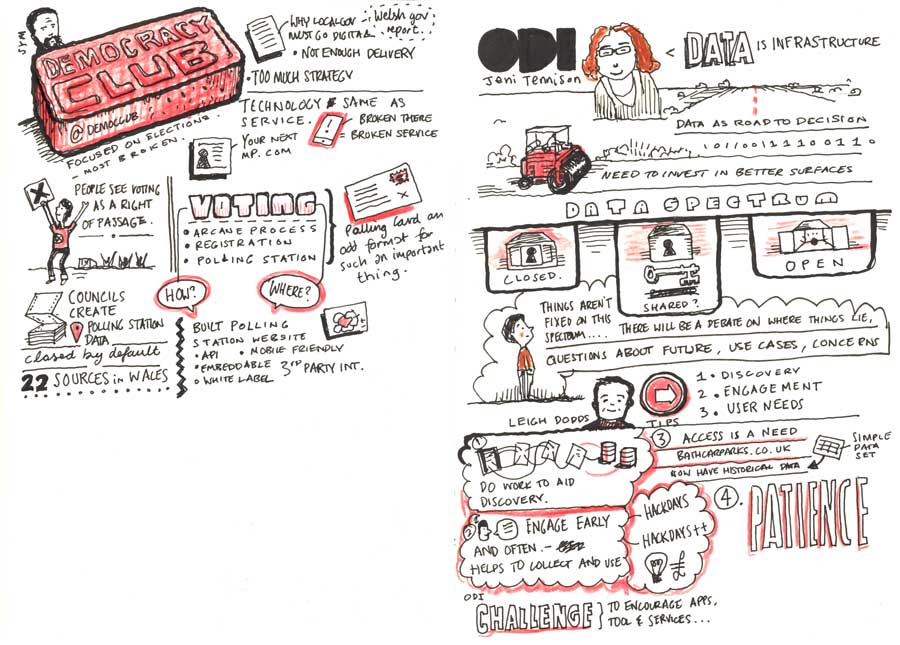 JYM
DEMOCRACY
CLUB
@DEMOCLUB
FOCUSED ON ELECTIONS
- MOST BROKEN.
WHY LOCALGOV
MUST GO DIGITAL
Welsh gov
report.
• NOT ENOUGH DELIVERY
• TOO MUCH STRATEGY
TECHNOLOGY SAME AS
SERVICE.
!
BROKEN THERE
= BROKEN SERVICE
YOUR NEXT
MP.COM
X
PEOPLE SEE VOTING
AS A RIGHT
OF PASSAGE.
VOTING
• ARCANE PROCESS
• REGISTRATION
• POLLING STATION
Polling card an
odd format for
such an important
thing.
HOW?
WHERE?
COUNCILS
CREATE
POLLING STATION
DATA
closed by default
22 SOURCES in WALES
BUILT POLLING
STATION WEBSITE
• API • MOBILE FRIENDLY
• EMBEDDABLE 3RD PARTY INT.
• WHITE LABEL
ODI
Jeni Tennison
< DATA IS INFRASTRUCTURE
DATA AS ROAD TO DECISION
1011001111100110
NEED TO INVEST IN BETTER SURFACES
DATA SPECTRUM
CLOSED.
SHARED?
OPEN
THINGS AREN'T
FIXED ON THIS
SPECTRUM....
THERE WILL BE A DEBATE ON WHERE THINGS LIE,
QUESTIONS ABOUT FUTURE, USE CASES, CONCERNS
LEIGH DODDS
TIPS
1. DISCOVERY
2. ENGAGEMENT
3. USER NEEDS
1
DO WORK TO AID
DISCOVERY.
2 ENGAGE EARLY
AND OFTEN. -
HELPS TO COLLECT AND USE
HACKDAYS
HACKDAYS++
£
3 ACCESS IS A NEED
BATHCARPARKS.CO.UK
NOW HAVE HISTORICAL DATA
SIMPLE
DATA
SET
4. PATIENCE
ODI
CHALLENGE } TO ENCOURAGE APPS,
TOOL & SERVICES...